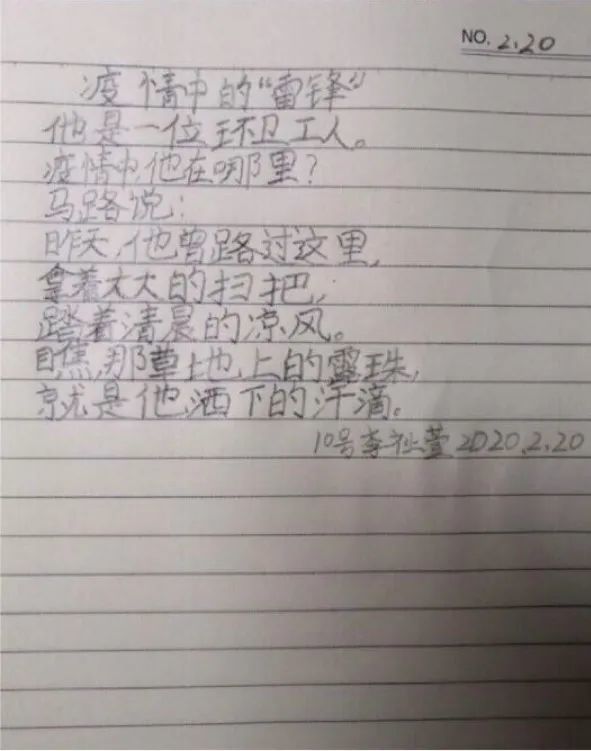 NO. 2.20
疫情中的“雷锋”
他是一位环卫工人。
疫情中他在哪里?
马路说:
昨天,他曾路过这里,
拿着大大的扫把,
踏着清晨的凉风。
瞧,那草地上的露珠,
就是他洒下的汗滴。
10号李祉萱2020.2.20